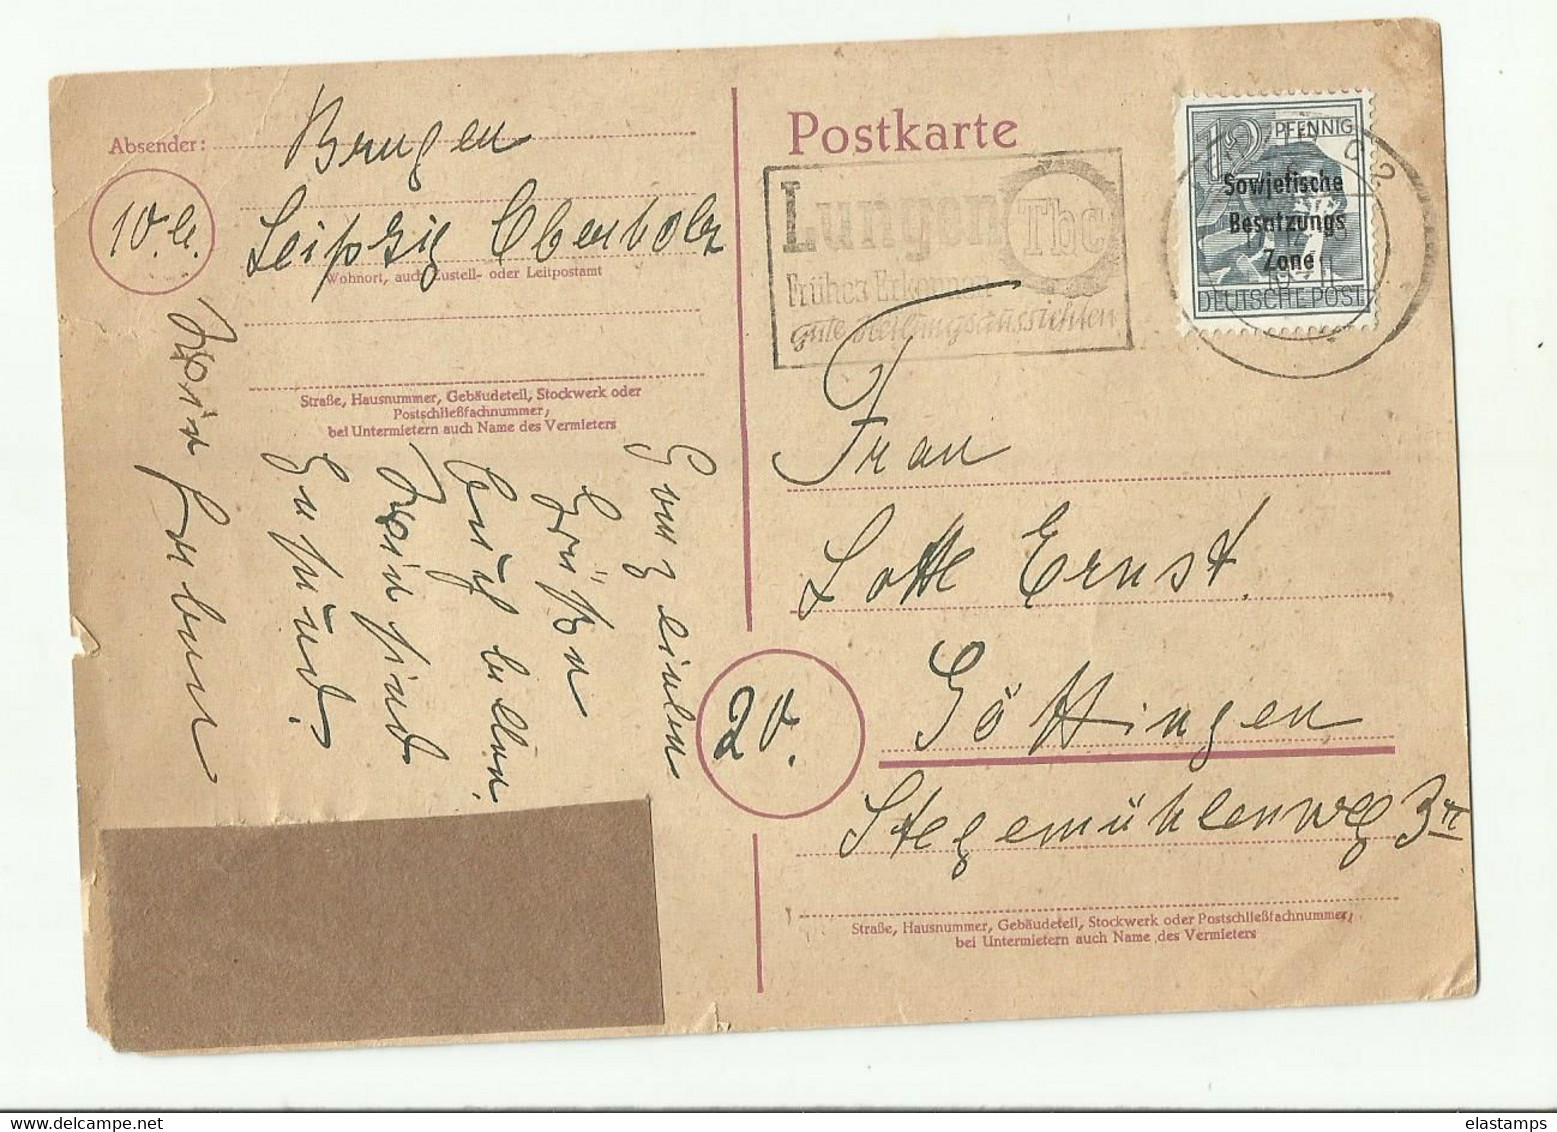 Absender:
Brugen
10 b.
Leipzig Oberholz
Wohnort, auch Zustell- oder Leitpostamt
Straße, Hausnummer, Gebäudeteil, Stockwerk oder
Postschließfachnummer,
bei Untermietern auch Name des Vermieters
Postkarte
Lungen Tbc
Frühes Erkennen
gute Heilungsaussichten
12 PFENNIG
Sowjetische
Besatzungs
Zone
DEUTSCHE POST
C2
10-11
Frau
Lotte Ernst.
20.
Göttingen
Stegemühlenweg 3 II
Straße, Hausnummer, Gebäudeteil, Stockwerk oder Postschließfachnummer,
bei Untermietern auch Name des Vermieters
Ganz lieben
Grüßen
Euch
Wir sind
Gesund.
Wir haben
elastamps